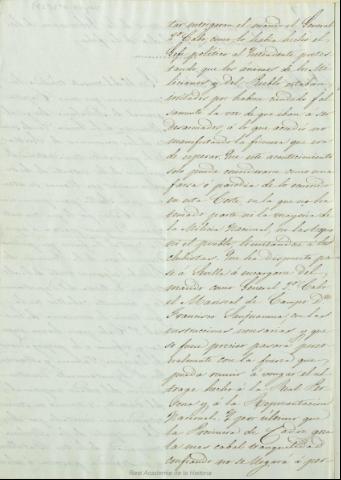 tar entregaron el mando al General
2º Cabo, como lo había hecho el
Gefe político al Yntendente pretes-
tando que los animos de los Mi-
licianos y del Pueblo estaban
irritados por haberse vendido fal
samente la voz de que iban a ser
Desarmados, á lo que accedió no
manifestando la firmeza que era
de esperar. Que este acontecimiento
solo puede considerarse como una
farsa o parodia de lo ocurrido
en esta Corte, en la que no ha
tomado parte ni la mayoria de
la Milicia Nacional, ni las tropas
ni el pueblo, limitandose a los
clubistas. Que ha dispuesto pa
se á Sevilla á encargarse del
mando como General 2º Cabo
el Mariscal de Campo Dn
Francisco Sanjuanena, con las
instrucciones necesarias, y que
si fuese preciso pasará perso
nalmente con la fuerza que
pueda reunir á vengar el ul
trage hecho á la Real Per
sona y á la Representacion
Nacional. Y por último que
la Provincia de Cadiz goza
la mas cabal tranquilidad
confiando no se llegará á per
Real Academia de la Historia